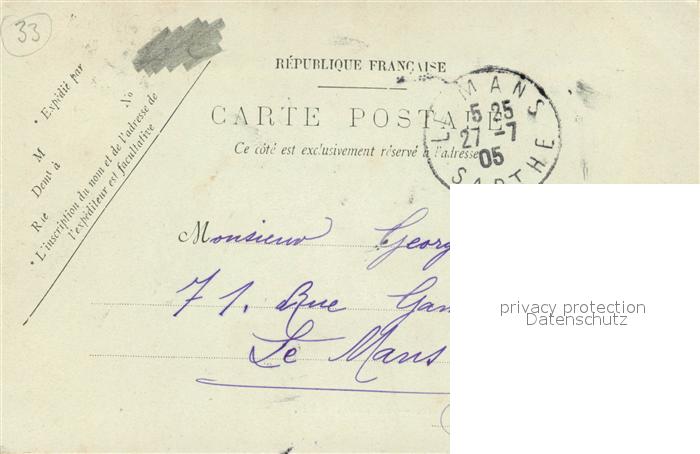 33
* Expédié par
M
Dem^t à
R^ue
N^o
* L'inscription du nom et de l'adresse de
l'expéditeur est facultative
RÉPUBLIQUE FRANÇAISE
CARTE POSTALE
Ce côté est exclusivement réservé à l'adresse
LE MANS
5 25
27 -7
05
SARTHE
Monsieur Georg
71. Rue Gam
Le Mans
privacy protection
Datenschutz